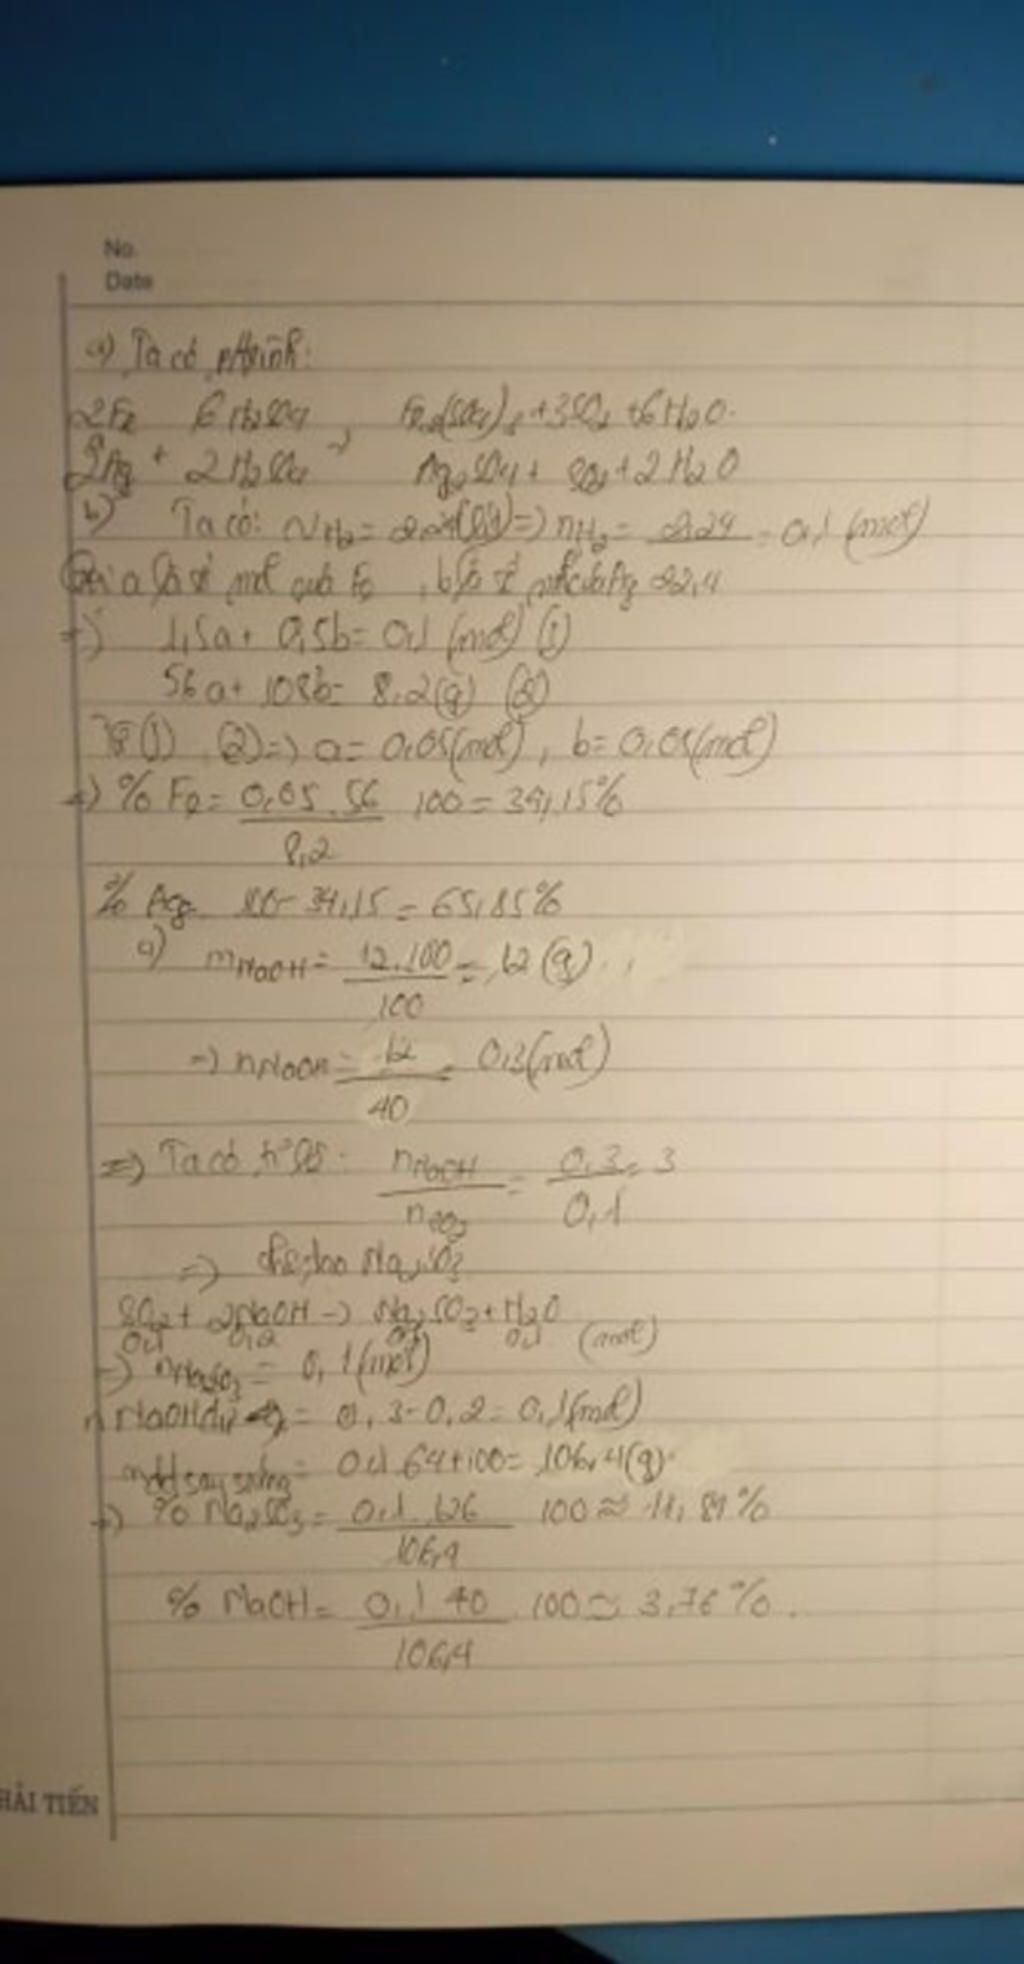 No.
Date
a) Ta có ptrình:
2Fe 6H2SO4 → Fe2(SO4)3 + 3SO2 + 6H2O
2Ag + 2H2SO4 → Ag2SO4 + SO2 + 2H2O
b) Ta có: VH2 = 2,24(lít) => nH2 = 2,24 / 22,4 = 0,1 (mol)
Gọi a là số mol của Fe, b là số mol của Ag
=) 1,5a + 0,5b = 0,1 (mol) (1)
56a + 108b = 8,2(g) (2)
Từ (1), (2) =) a = 0,05(mol), b = 0,05(mol)
=) % Fe = 0,05.56 / 8,2 . 100 = 34,15%
% Ag = 100 - 34,15 = 65,85%
c) mNaOH = 12.100 / 100 = 12 (g)
=) nNaOH = 12 / 40 = 0,3(mol)
=) Ta có: nNaOH / nSO2 = 0,3 / 0,1 = 3
=) tạo Na2SO3
SO2 + 2NaOH -) Na2SO3 + H2O
0,1 0,2 0,1 0,1 (mol)
=) nNa2SO3 = 0,1(mol)
nNaOH dư = 0,3 - 0,2 = 0,1(mol)
mdd = 0,1.64 + 100 = 106,4(g)
=) % Na2SO3 = 0,1.126 / 106,4 . 100 ≈ 11,84%
% NaOH = 0,1.40 / 106,4 . 100 ≈ 3,76%.
HẢI TIẾN